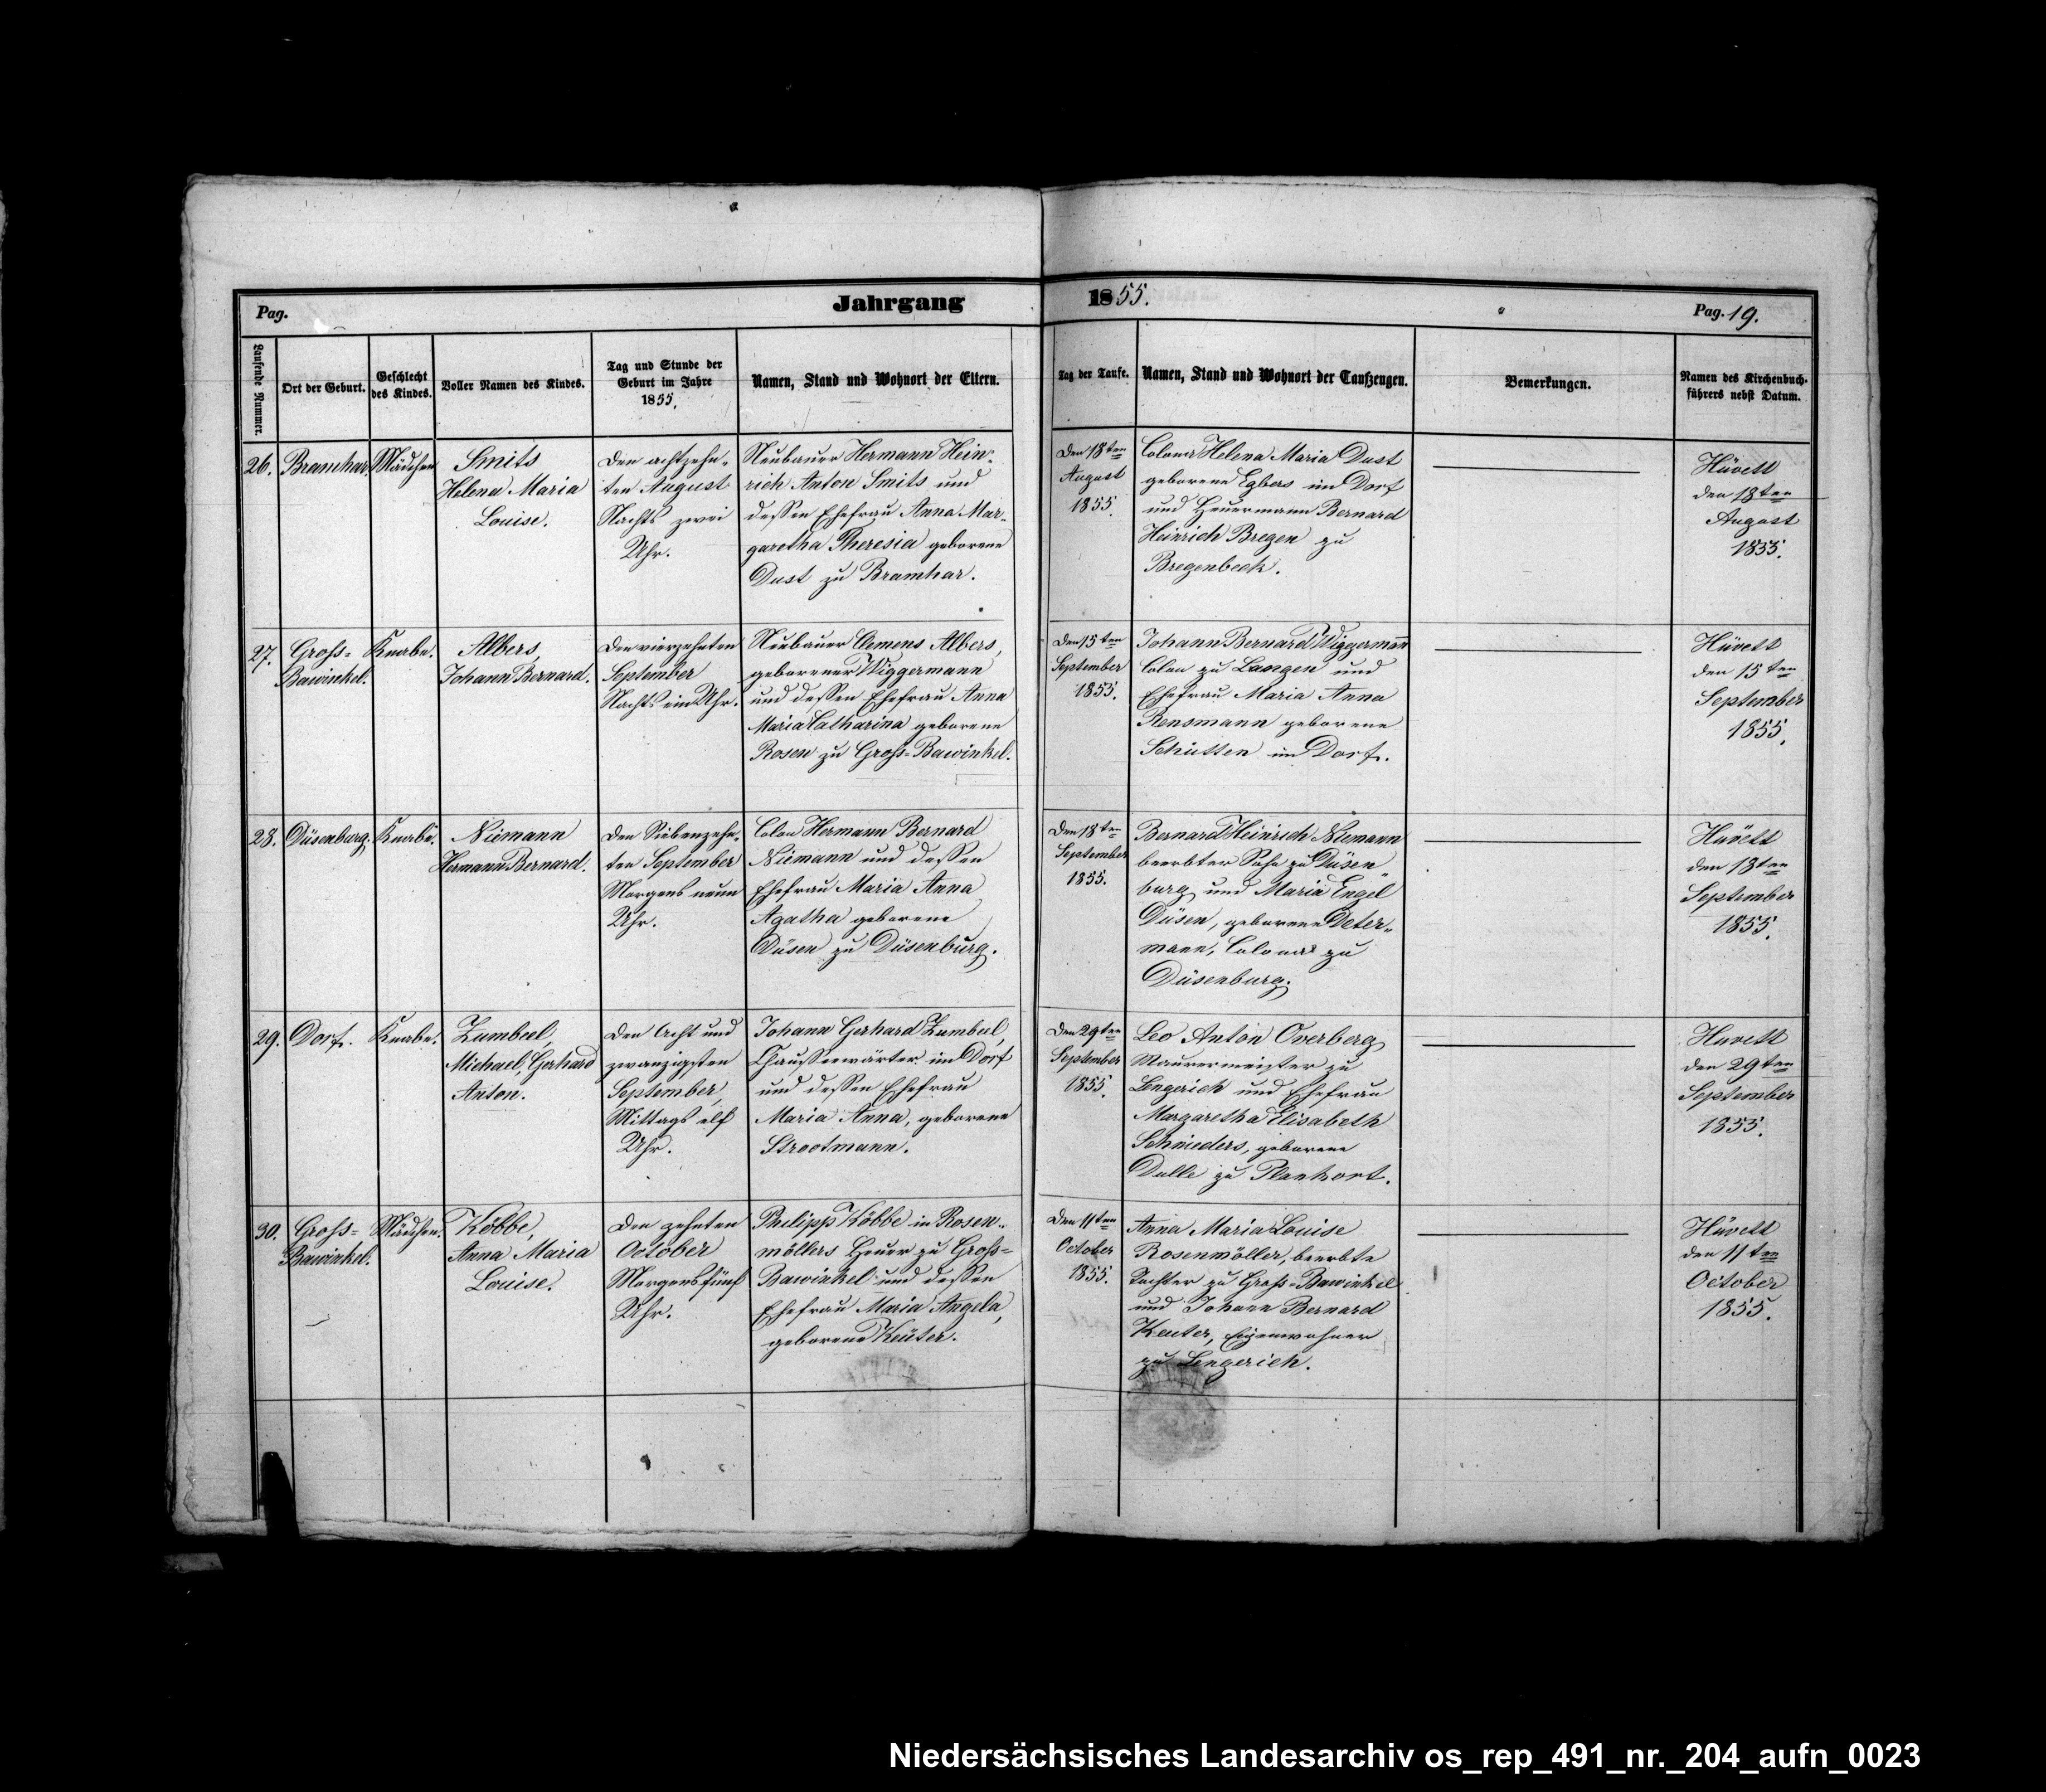 Pag.
Jahrgang
1855.
Pag. 19.
Laufende Nummer.
Ort der Geburt.
Geschlecht
des Kindes.
Voller Namen des Kindes.
Tag und Stunde der
Geburt im Jahre
1855.
Namen, Stand und Wohnort der Eltern.
Tag der Taufe.
Namen, Stand und Wohnort der Taufzeugen.
Bemerkungen.
Namen des Kirchenbuch-
führers nebst Datum.
26.
Bramhar.
Mädchen
Smits
Helena Maria
Louise.
Den achtzehn-
ten August
Nachts zwei
Uhr.
Neubauer Hermann Hein-
rich Anton Smits und
dessen Ehefrau Anna Mar-
garetha Theresia geborene
Dust zu Bramhar.
Den 18ten
August
1855.
Colona Helena Maria Dust
geborene Egbers im Dorf
und Heuermann Bernard
Heinrich Bregen zu
Bregenbeck.
Hüvett
den 18ten
August
1855.
27.
Gross-
Bawinkel.
Knabe.
Albers,
Johann Bernard.
Den vierzehnten
September
Nachts ein Uhr.
Neubauer Clemens Albers,
geborener Wiggermann
und dessen Ehefrau Anna
Maria Catharina geborene
Rosen zu Gross-Bawinkel.
Den 15ten
September
1855.
Johann Bernard Wiggermann
Colon zu Langen und
Ehefrau Maria Anna
Rensmann geborene
Schütten im Dorf.
Hüvett
den 15ten
September
1855.
28.
Düsenburg.
Knabe.
Niemann
Hermann Bernard.
Den Siebenzehn-
ten September
Morgens neun
Uhr.
Colon Hermann Bernard
Niemann und dessen
Ehefrau Maria Anna
Agatha geborene
Düsen zu Düsenburg.
Den 18ten
September
1855.
Bernard Heinrich Niemann
beerbter Sohn zu Düsen-
burg und Maria Engel
Düsen, geborene Deter-
mann, Colona zu
Düsenburg.
Hüvett
den 18ten
September
1855.
29.
Dorf.
Knabe.
Zumbeel,
Michael, Gerhard
Anton.
Den Acht und
zwanzigsten
September,
Mittags elf
Uhr.
Johann Gerhard Zumbeel,
Chausseewärter im Dorf
und dessen Ehefrau
Maria Anna, geborene
Strootmann.
Den 29ten
September
1855.
Leo Anton Overberg
Maurermeister zu
Lengerich und Ehefrau
Margaretha Elisabeth
Schnieders, geborene
Dalle zu Plankort.
Hüvett
den 29ten
September
1855.
30.
Gross-
Bawinkel.
Mädchen.
Köbbe,
Anna Maria
Louise.
Den zehnten
October
Morgens fünf
Uhr.
Philipp Köbbe in Rosen-
möllers Heuer zu Gross-
Bawinkel und dessen
Ehefrau Maria Angela,
geborene Keüter.
Den 11ten
October
1855.
Anna Maria Louise
Rosenmöller, beerbte
Tochter zu Gross-Bawinkel
und Johann Bernard
Keuter, Eigenwohner
zu Lengerich.
Hüvett
den 11ten
October
1855.
Niedersächsisches Landesarchiv os_rep_491_nr._204_aufn_0023